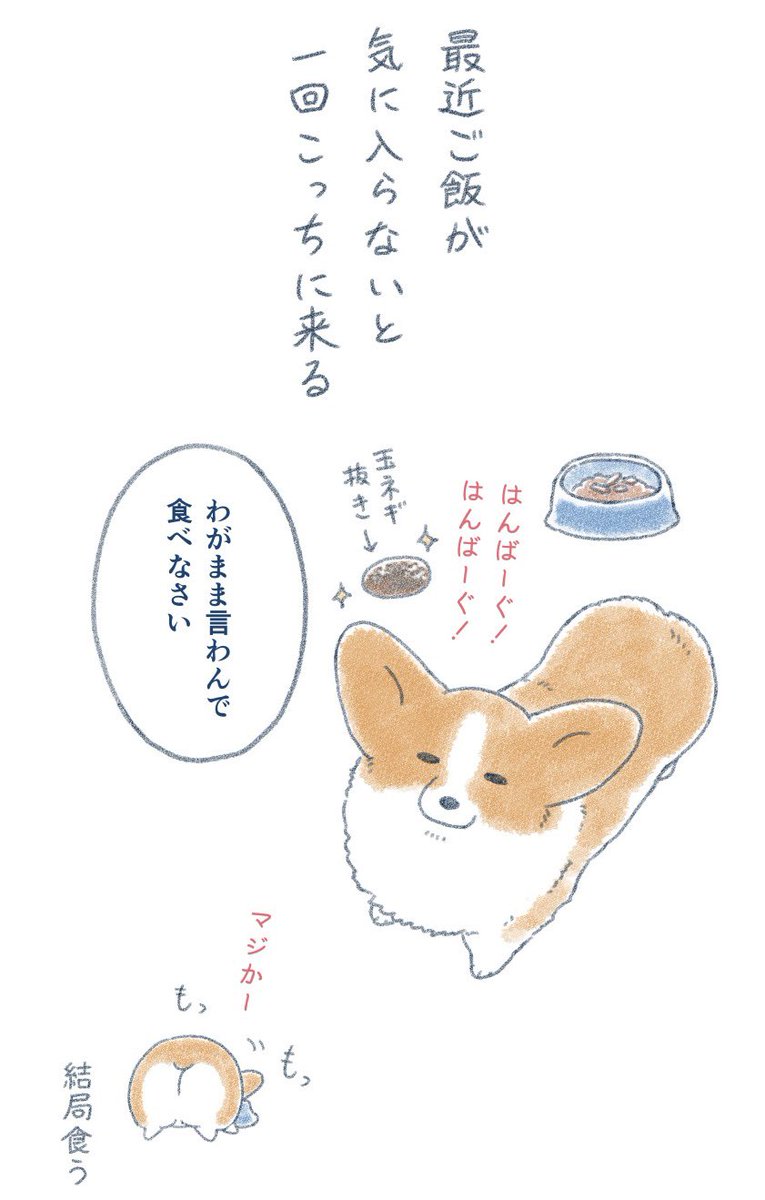 最近ご飯が
気に入らないと
一回こっちに来る
はんばーぐ！
はんばーぐ！
玉ネギ
抜き
わがまま言わんで
食べなさい
マジかー
もっ
もっ
結局食う